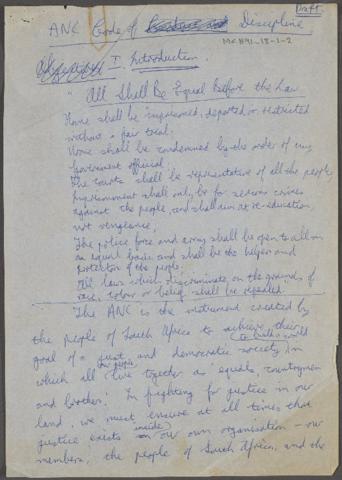 Draft.
ANC Code of Discipline
MCH91-18-1-2
I Introduction.
"All Shall Be Equal Before the Law
None shall be imprisoned, deported or restricted
without a fair trial;
None shall be condemned by the order of any
Government official;
The Courts shall be representative of all the people,
Imprisonment shall only be for serious crimes
against the people, and shall aim at re-education,
not vengeance;
The police force and army shall be open to all on
an equal basis and shall be the helpers and
protectors of the people;
All laws which discriminate on the grounds of
race, colour or belief shall be repealed."
The ANC is the instrument created by
the people of South Africa to achieve their
goal of a just and democratic society in
which all live together as equals, countrymen
and brothers. In fighting for justice in our
land, we must ensure at all times that
justice exists inside our own organisation - our
members, the people of South Africa, and the